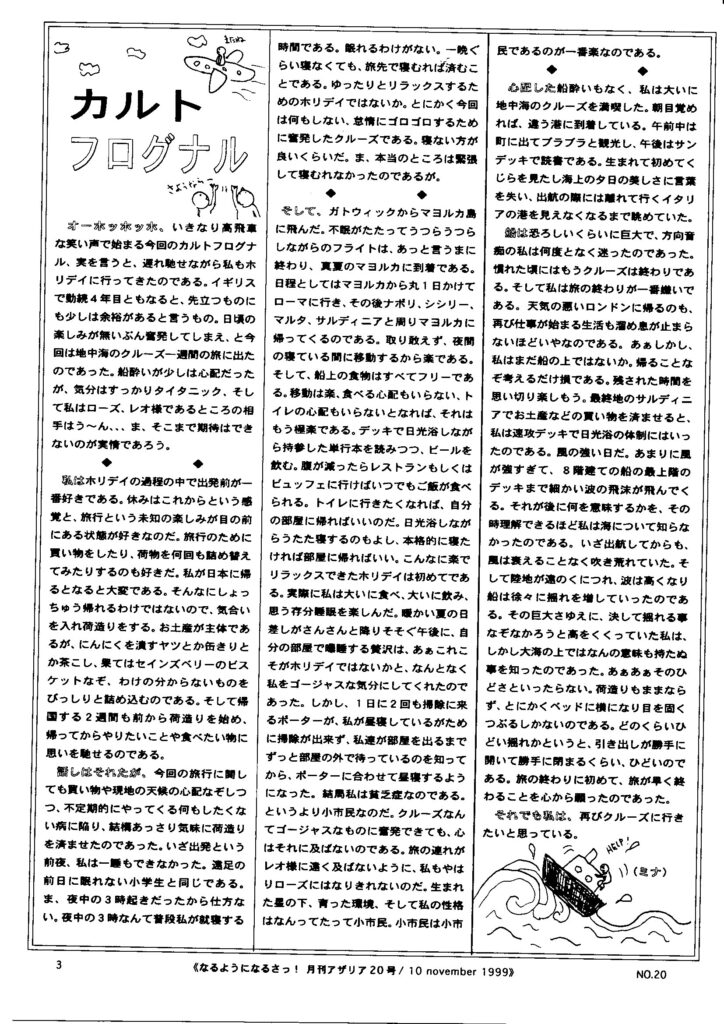 またね
カルト
フログナル
さようならー
オーホッホッホ、いきなり高飛車
な笑い声で始まる今回のカルトフログナ
ル、実を言うと、遅れ馳せながら私もホ
リデイに行ってきたのである。イギリス
で勤続４年目ともなると、先立つものに
も少しは余裕があると言うもの。日頃の
楽しみが無いぶん奮発してしまえ、と今
回は地中海のクルーズ一週間の旅に出た
のであった。船酔いが少しは心配だった
が、気分はすっかりタイタニック、そし
て私はローズ、レオ様であるところの相
手はう〜ん、、、ま、そこまで期待はでき
ないのが実情であろう。
◆ ◆
私はホリデイの過程の中で出発前が一
番好きである。休みはこれからという感
覚と、旅行という未知の楽しみが目の前
にある状態が好きなのだ。旅行のために
買い物をしたり、荷物を何回も詰め替え
てみたりするのも好きだ。私が日本に帰
るとなると大変である。そんなにしょっ
ちゅう帰れるわけではないので、気合い
を入れ荷造りをする。お土産が主体であ
るが、にんにくを潰すヤツとか缶きりと
か茶こし、果てはセインズベリーのビス
ケットなぞ、わけの分からないものを
びっしりと詰め込むのである。そして帰
国する２週間も前から荷造りを始め、
帰ってからやりたいことや食べたい物に
思いを馳せるのである。
話しはそれたが、今回の旅行に関し
ても買い物や現地の天候の心配なぞしつ
つ、不定期的にやってくる何もしたくな
い病に陥り、結構あっさり気味に荷造り
を済ませたのであった。いざ出発という
前夜、私は一睡もできなかった。遠足の
前日に眠れない小学生と同じである。
ま、夜中の３時起きだったから仕方な
い。夜中の３時なんて普段私が就寝する
時間である。眠れるわけがない。一晩ぐ
らい寝なくても、旅先で寝むれば済むこ
とである。ゆったりとリラックスするた
めのホリデイではないか。とにかく今回
は何もしない、怠惰にゴロゴロするため
に奮発したクルーズである。寝ない方が
良いくらいだ。ま、本当のところは緊張
して寝むれなかったのであるが。
◆ ◆
そして、ガトウィックからマヨルカ島
に飛んだ。不眠がたたってうつらうつら
しながらのフライトは、あっと言うまに
終わり、真夏のマヨルカに到着である。
日程としてはマヨルカから丸１日かけて
ローマに行き、その後ナポリ、シシリー、
マルタ、サルディニアと周りマヨルカに
帰ってくるのである。取り敢えず、夜間
の寝ている間に移動するから楽である。
そして、船上の食物はすべてフリーであ
る。移動は楽、食べる心配もいらない、ト
イレの心配もいらないとなれば、それは
もう極楽である。デッキで日光浴しなが
ら持参した単行本を読みつつ、ビールを
飲む。腹が減ったらレストランもしくは
ビュッフェに行けばいつでもご飯が食べ
られる。トイレに行きたくなれば、自分
の部屋に帰ればいいのだ。日光浴しなが
らうたた寝するのもよし、本格的に寝た
ければ部屋に帰ればいい。こんなに楽で
リラックスできたホリデイは初めてであ
る。実際に私は大いに食べ、大いに飲み、
思う存分睡眠を楽しんだ。暖かい夏の日
差しがさんさんと降りそそぐ午後に、自
分の部屋で昼寝する贅沢は、あぁこれこ
そがホリデイではないかと、なんとなく
私をゴージャスな気分にしてくれたので
あった。しかし、１日に２回も掃除に来
るポーターが、私が昼寝しているがため
に掃除が出来ず、私達が部屋を出るまで
ずっと部屋の外で待っているのを知って
から、ポーターに合わせて昼寝するよう
になった。結局私は貧乏症なのである。
というより小市民なのだ。クルーズなん
てゴージャスなものに奮発できても、心
はそれに及ばないのである。旅の連れが
レオ様に遠く及ばないように、私もやは
りローズにはなりきれないのだ。生まれ
た星の下、育った環境、そして私の性格
はなんってたって小市民。小市民は小市
民であるのが一番楽なのである。
心配した船酔いもなく、私は大いに
地中海のクルーズを満喫した。朝目覚め
れば、違う港に到着している。午前中は
町に出てブラブラと観光し、午後はサン
デッキで読書である。生まれて初めてく
じらを見たし海上の夕日の美しさに言葉
を失い、出航の際には離れて行くイタリ
アの港を見えなくなるまで眺めていた。
船は恐ろしいくらいに巨大で、方向音
痴の私は何度となく迷ったのであった。
慣れた頃にはもうクルーズは終わりであ
る。そして私は旅の終わりが一番嫌いで
ある。天気の悪いロンドンに帰るのも、
再び仕事が始まる生活も溜め息が止まら
ないほどいやなのである。あぁしかし、
私はまだ船の上ではないか。帰ることな
ぞ考えるだけ損である。残された時間を
思い切り楽しもう。最終地のサルディニ
アでお土産などの買い物を済ませると、
私は速攻デッキで日光浴の体制にはいっ
たのである。風の強い日だ。あまりに風
が強すぎて、８階建ての船の最上階の
デッキまで細かい波の飛沫が飛んでく
る。それが後に何を意味するかを、その
時理解できるほど私は海について知らな
かったのである。いざ出航してからも、
風は衰えることなく吹き荒れていた。そ
して陸地が遠のくにつれ、波は高くなり
船は徐々に揺れを増していったのであ
る。その巨大さゆえに、決して揺れる事
なぞなかろうと高をくくっていた私は、
しかし大海の上ではなんの意味も持たぬ
事を知ったのであった。あぁあぁそのひ
どさといったらない。荷造りもままなら
ず、とにかくベッドに横になり目を固く
つぶるしかないのである。どのくらいひ
どい揺れかというと、引き出しが勝手に
開いて勝手に閉まるくらい、ひどいので
ある。旅の終わりに初めて、旅が早く終
わることを心から願ったのであった。
それでも私は、再びクルーズに行き
たいと思っている。
HELP!
（ミナ）
3
《なるようになるさっ！ 月刊アザリア20号 / 10 november 1999》
NO.20